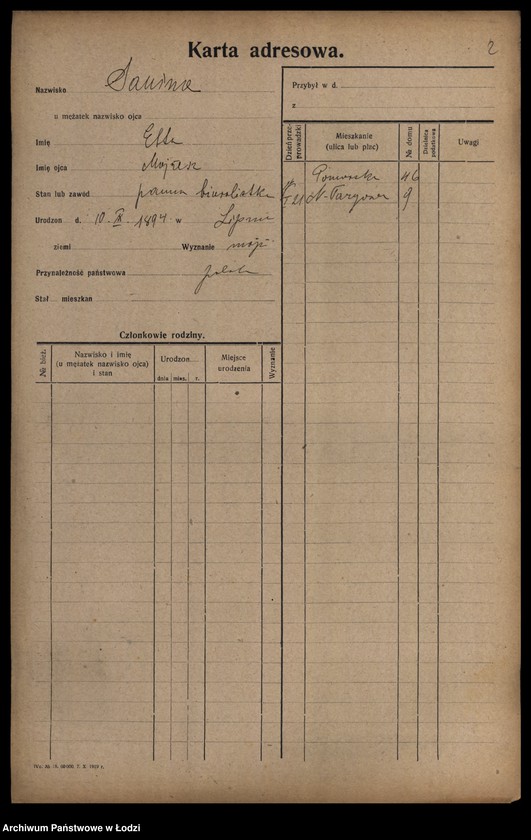 Karta adresowa.
2
Nazwisko
u mężatek nazwisko ojca
Imię
Imię ojca
Stan lub zawód panna biuralistka
Urodzon d. 10 XII 1894 w Lipnie
ziemi Wyznanie mojż
Przynależność państwowa polska
Stał mieszkan
Przybył w d.
z
Dzień przeprowadzki
Mieszkanie
(ulica lub plac)
№ domu
Dzielnica podatkowa
Uwagi
Pomorska 46
N-Targowa 9
Członkowie rodziny.
№ bież.
Nazwisko i imię
(u mężatek nazwisko ojca)
i stan
Urodzon
dnia mies. r.
Miejsce
urodzenia
Wyznanie
Archiwum Państwowe w Łodzi